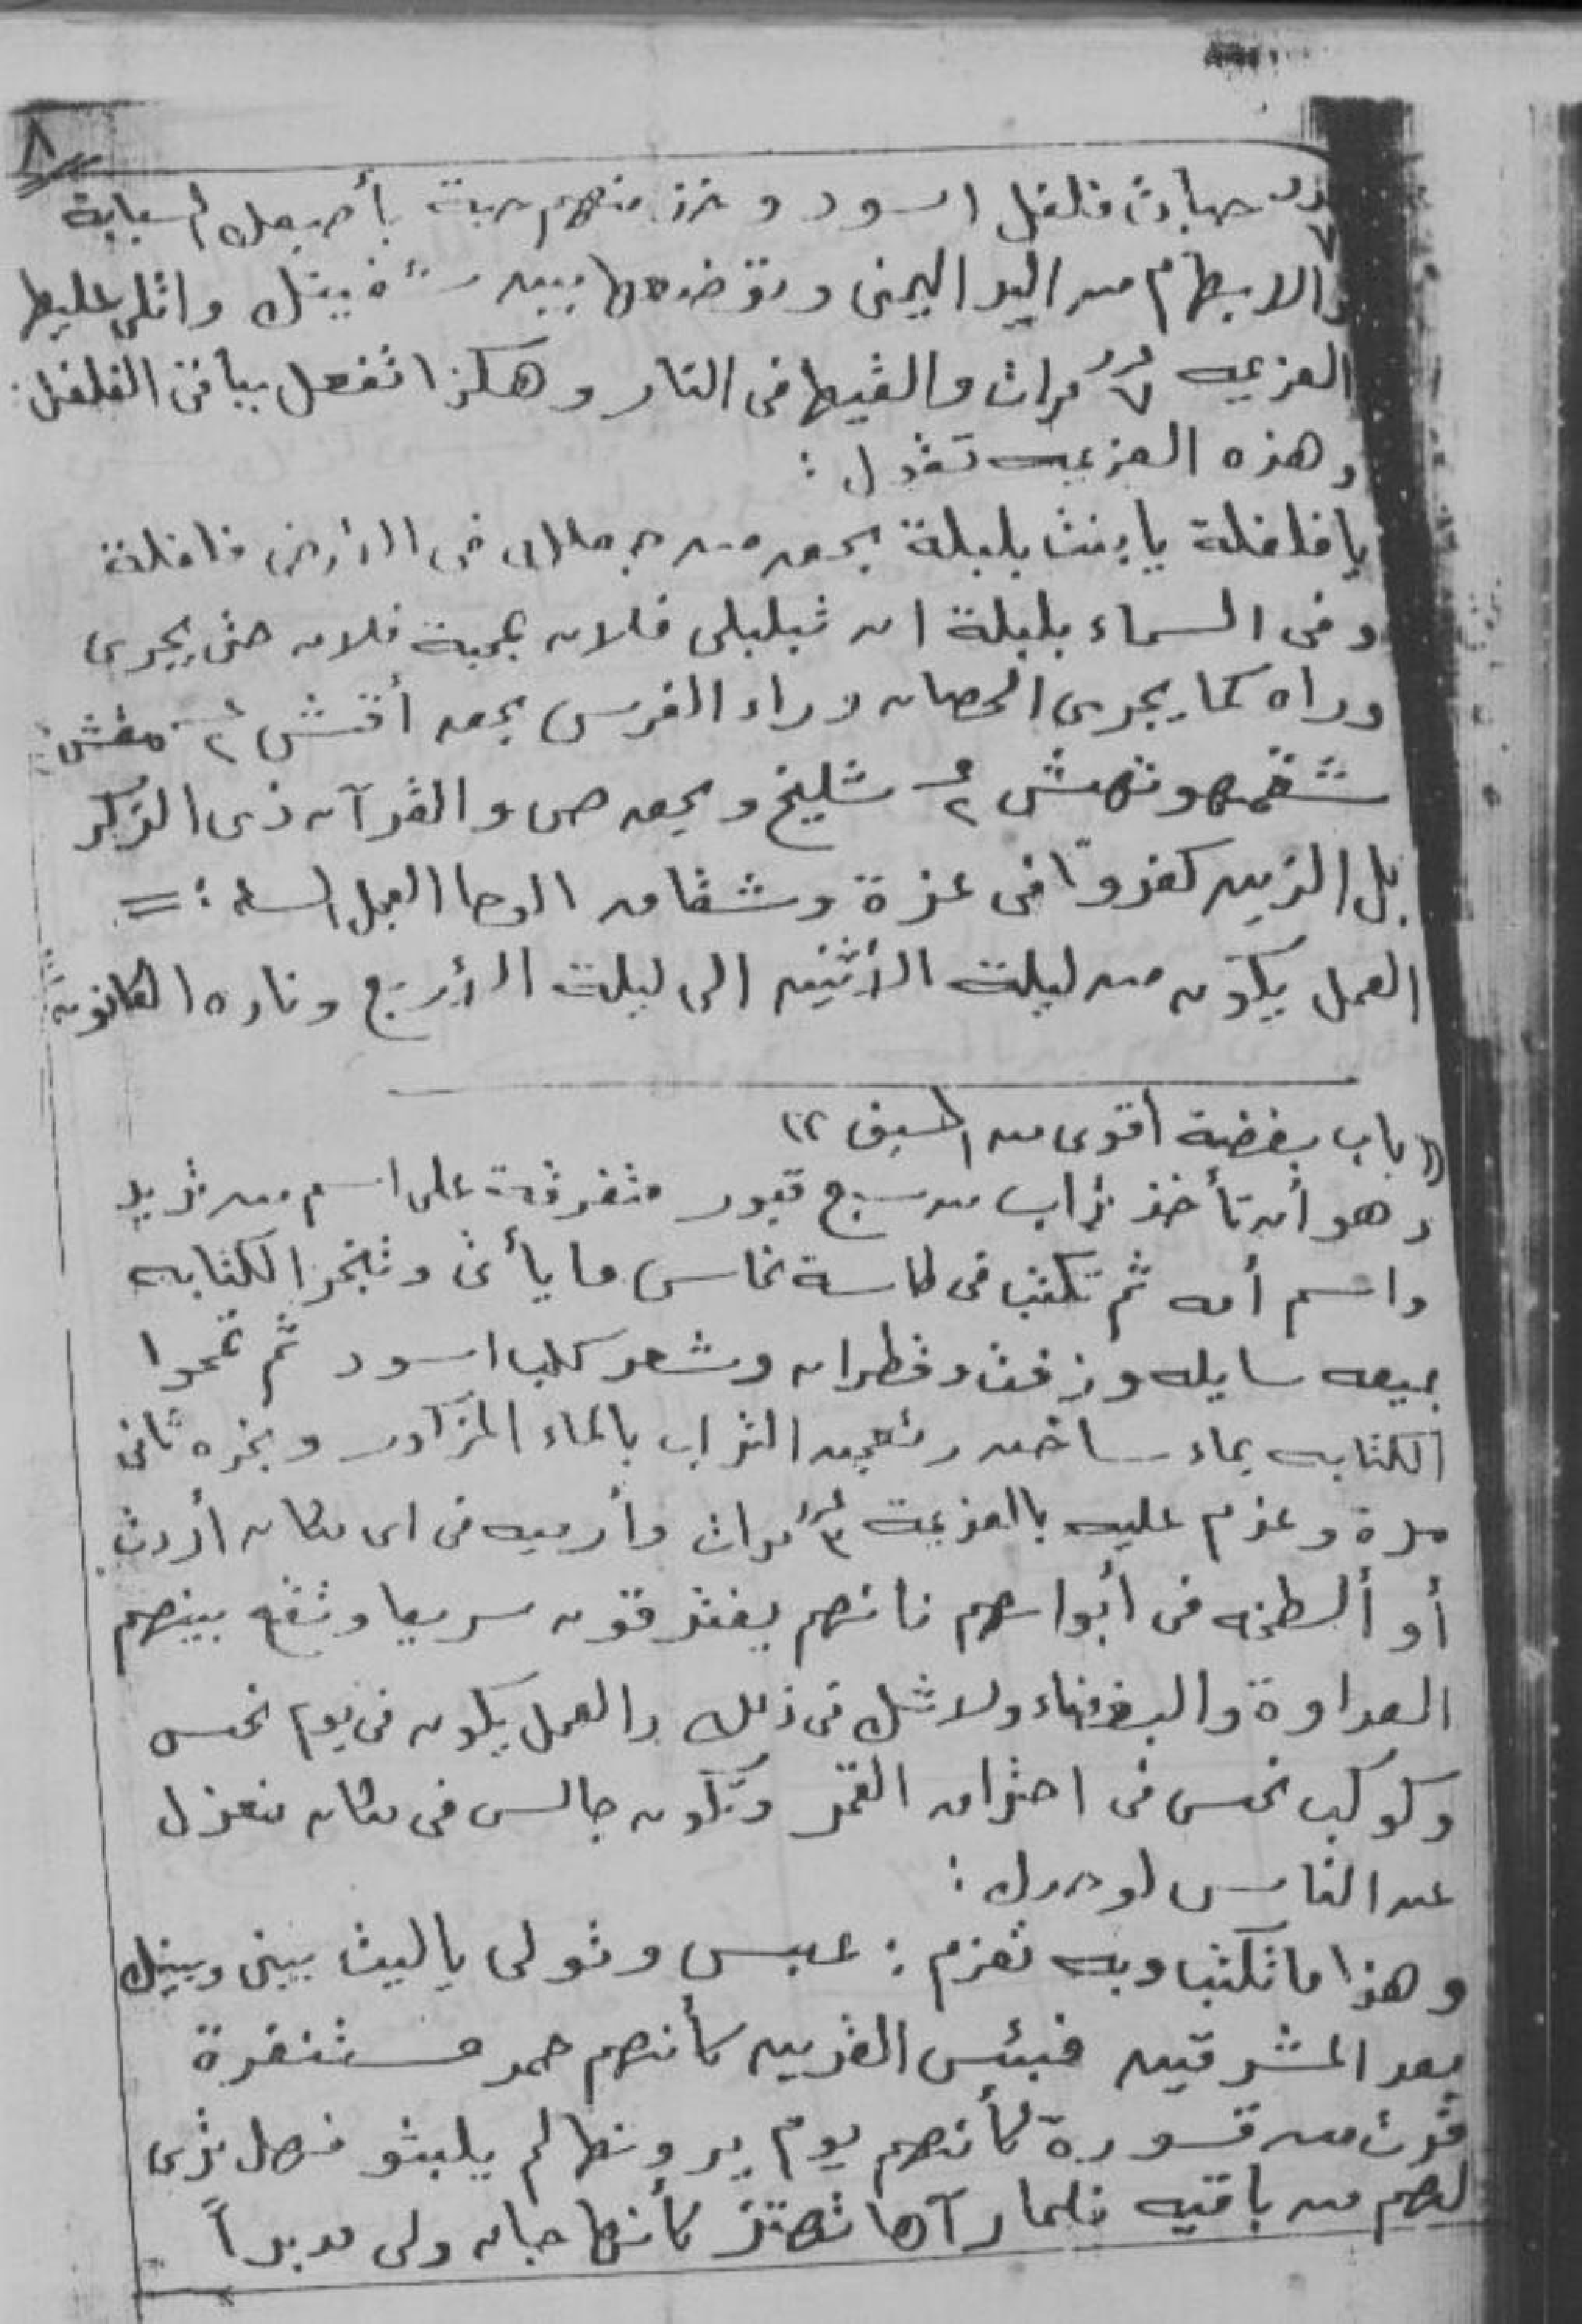 ٨
٧ حبات فلفل اسود وخذ منهم حبة بأصبعك السبابة
والابهام من اليد اليمنى وتوضعها بين شفيتك واتلى عليها
العزيمه ٧ مرات والقيها فى النار وهكذا تفعل بباقى الفلفل:
وهذه العزيمه تقول:
يا فلفلة يا بنت بلبلة بحق من جعلك فى الارض فلفلة
وفى السماء بلبلة ان تبلبلى فلان بمحبة فلان حتى يجرى
وراه كما يجرى الحصان وراء الفرس بحق أقش ٢ مقش
شقمهونهش ٢ شليخ وبحق ص والقرآن ذى الذكر
بل الذين كفروا فى عزة وشقاق الوحا العجل الساعة :=
العمل يكون من ليلة الأثنين الى ليلة الأربع وناره الكانون
«باب بغضة أقوى من السيف»
وهو أن تأخذ تراب من سبع قبور متفرقة على اسم من تريد
واسم أمه ثم تكتب فى طاسة نحاس ما يأتى وتبخر الكتابه
بميعه سايله وزفت وقطران وشعر كلب اسود ثم تمحوا
الكتابه بماء ساخن وتعجن التراب بالماء المذكور وبخره ثانى
مرة وعزم عليه بالعزيمة ٣ مرات وأرميه فى اى مكان أردت
أو ألطخه فى أبوابهم فانهم يفترقون سريعا وتقع بينهم
العداوة والبغضاء ولا شك فى ذلك والعمل يكون فى يوم نحس
وكوكب نحس فى احتراق القمر وتكون جالس فى مكان منعزل
عن الناس لوحدك:
وهذا ما تكتب وبه تعزم: عبس وتولى ياليت بينى وبينك
بعد المشرقين فبئس القرين كأنهم حمر مستنفرة
فرت من قسورة كأنهم يوم يرونها لم يلبثو فهل ترى
لهم من باقيه فلما رآها تهتز كأنها جان ولى مدبراً